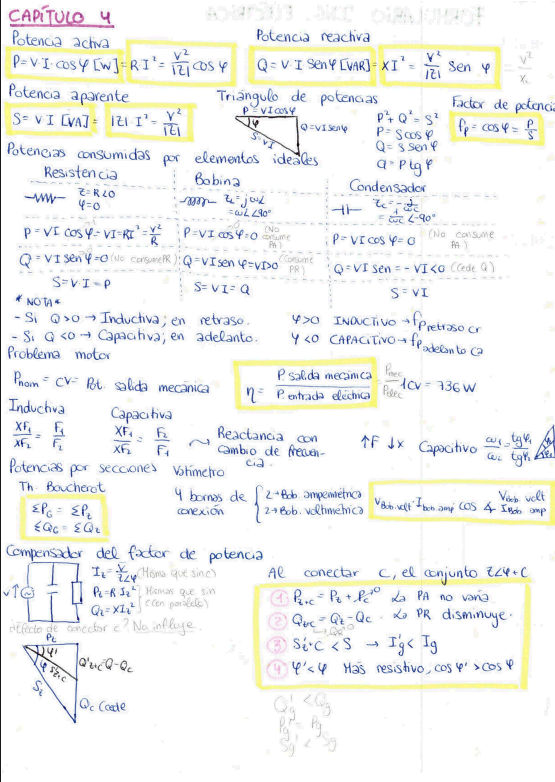 CAPÍTULO 4
Potencia activa
P = V·I·cos φ [W] = R I² = V²/|Z| cos φ
Potencia reactiva
Q = V·I sen φ [VAR] = X I² = V²/|Z| sen φ = V²/X
Potencia aparente
S = V I [VA] = |Z|·I² = V²/|Z|
Triángulo de potencias
P = V I cos φ
φ
Q = V I sen φ
S = V I
P² + Q² = S²
P = S cos φ
Q = S sen φ
Q = P tg φ
Factor de potencia
fp = cos φ = P/S
Potencias consumidas por elementos ideales
Resistencia
Z = R∠0
φ = 0
P = VI cos φ = VI = RI² = V²/R
Q = VI sen φ = 0 (No consume PR)
S = V·I = P
Bobina
Z = jωL
= ωL∠90°
P = VI cos φ = 0 (No consume PA)
Q = VI sen φ = VI>0 (Consume PR)
S = VI = Q
Condensador
Zc = -j/ωc
= 1/ωc ∠-90°
P = VI cos φ = 0 (No consume PA)
Q = VI sen = -VI<0 (Cede Q)
S = VI
* NOTA *
- Si Q>0 → Inductiva; en retraso.
- Si Q<0 → Capacitiva; en adelanto.
φ>0 INDUCTIVO → fp retraso cr
φ<0 CAPACITIVO → fp adelanto ca
Problema motor
Pnom = CV = Pot. salida mecánica
η = P. salida mecánica / P. entrada eléctrica = Pmec/Pelec
1CV = 736 W
Inductiva
XF₁/XF₂ = F₁/F₂
Capacitiva
XF₁/XF₂ = F₂/F₁
Reactancia con cambio de frecuencia.
↑F ↓X Capacitivo ω₁/ω₂ = tgφ₁/tgφ₂
Potencias por secciones
Th. Boucherot
ΣPG = ΣPz
ΣQG = ΣQz
Vatímetro
4 bornas de conexión
2→Bob amperimétrica
2→Bob. voltimétrica
V Bob. volt · I bob amp cos ∡ V Bob. volt I Bob amp
Compensador del factor de potencia
V↑
Iz = V/Z∠φ (Misma que sin c)
Pz = R Iz²
Qz = X Iz²
Mismas que sin c (en paralelo)
¿Efecto de conectar c? No influye.
Pz
φ'
φ
Sz+c
Sz
Q'z+c = Q-Qc
Qc (cede
Al conectar C, el conjunto Z∠φ+C
① Pz+c = Pz + Pc⁼⁰ La PA no varía
② Qz+c = Qz - Qc La PR disminuye.
③ Sz+c < S → I'g < Ig
④ φ'<φ Más resistivo, cos φ' > cos φ
Q'g < Qg
P'g = Pg
Sg' < Sg